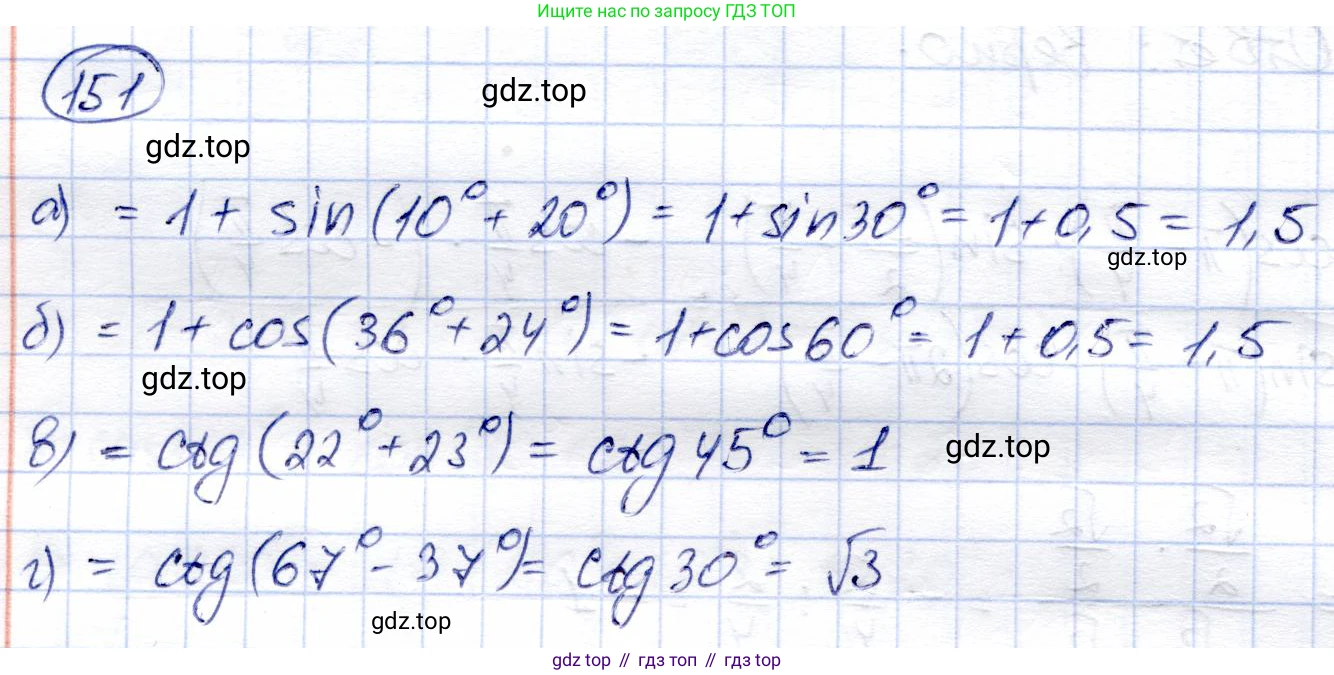 Ищите нас по запросу ГДЗ ТОП
151
gdz.top
gdz.top
а) = 1 + sin(10° + 20°) = 1 + sin30° = 1 + 0,5 = 1,5
gdz.top
б) = 1 + cos(36° + 24°) = 1 + cos60° = 1 + 0,5 = 1,5
gdz.top
в) = ctg(22° + 23°) = ctg 45° = 1
gdz.top
г) = ctg(67° - 37°) = ctg 30° = √3
gdz.top
gdz top // гдз топ // gdz top